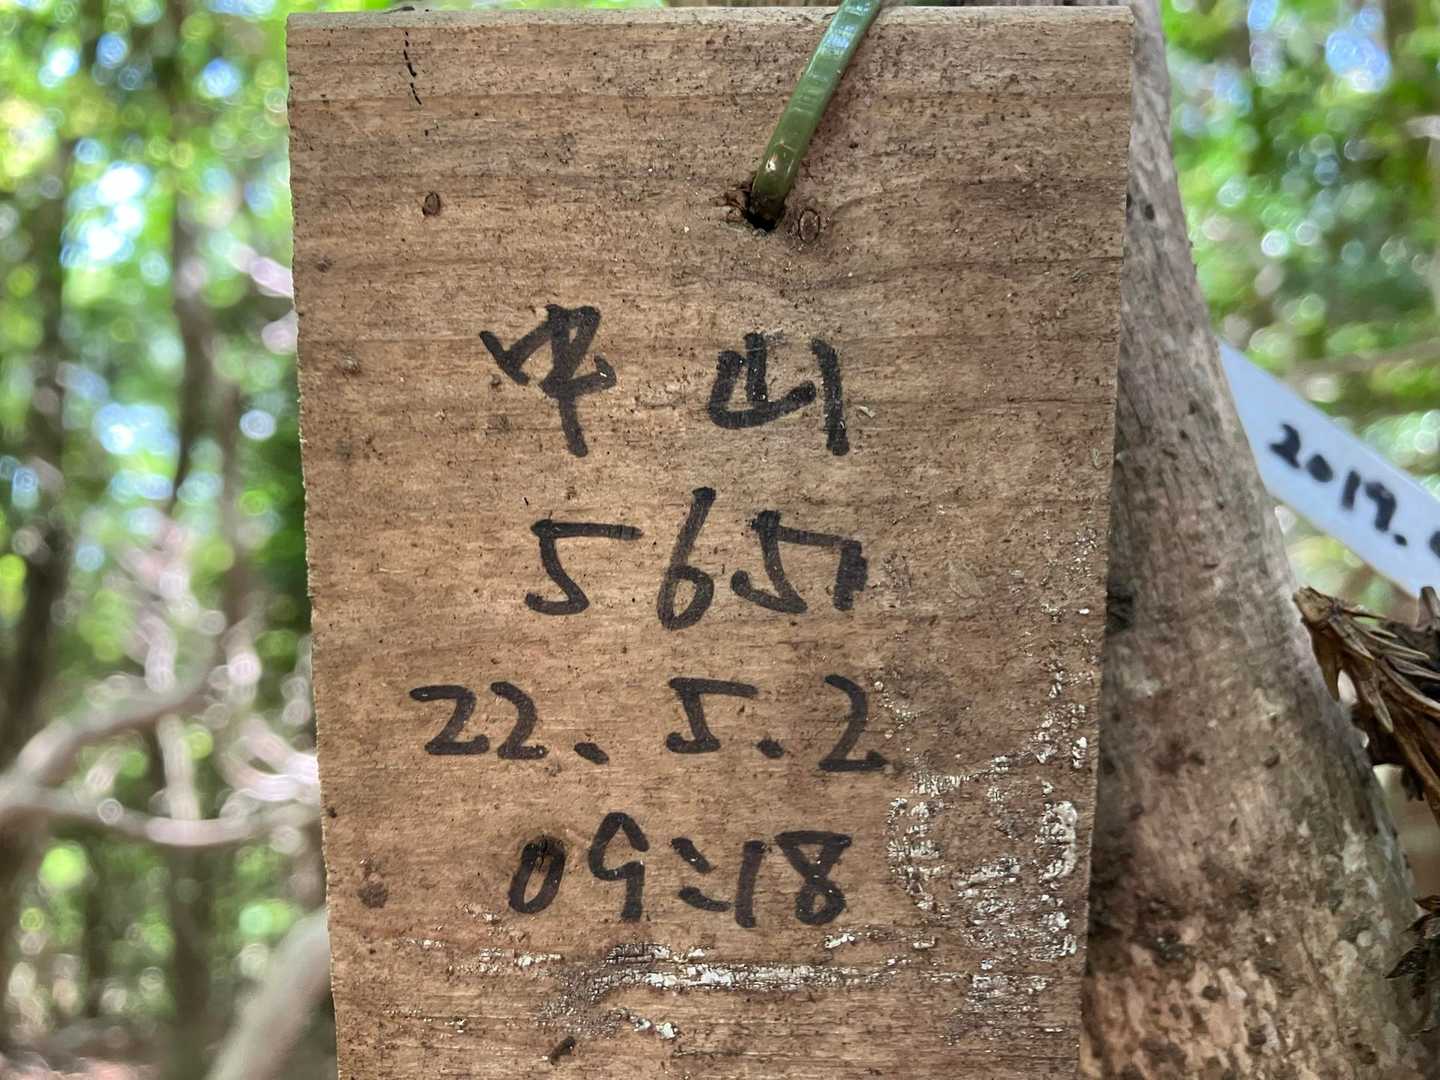 中山
565m
22.5.2
09:18
2019.